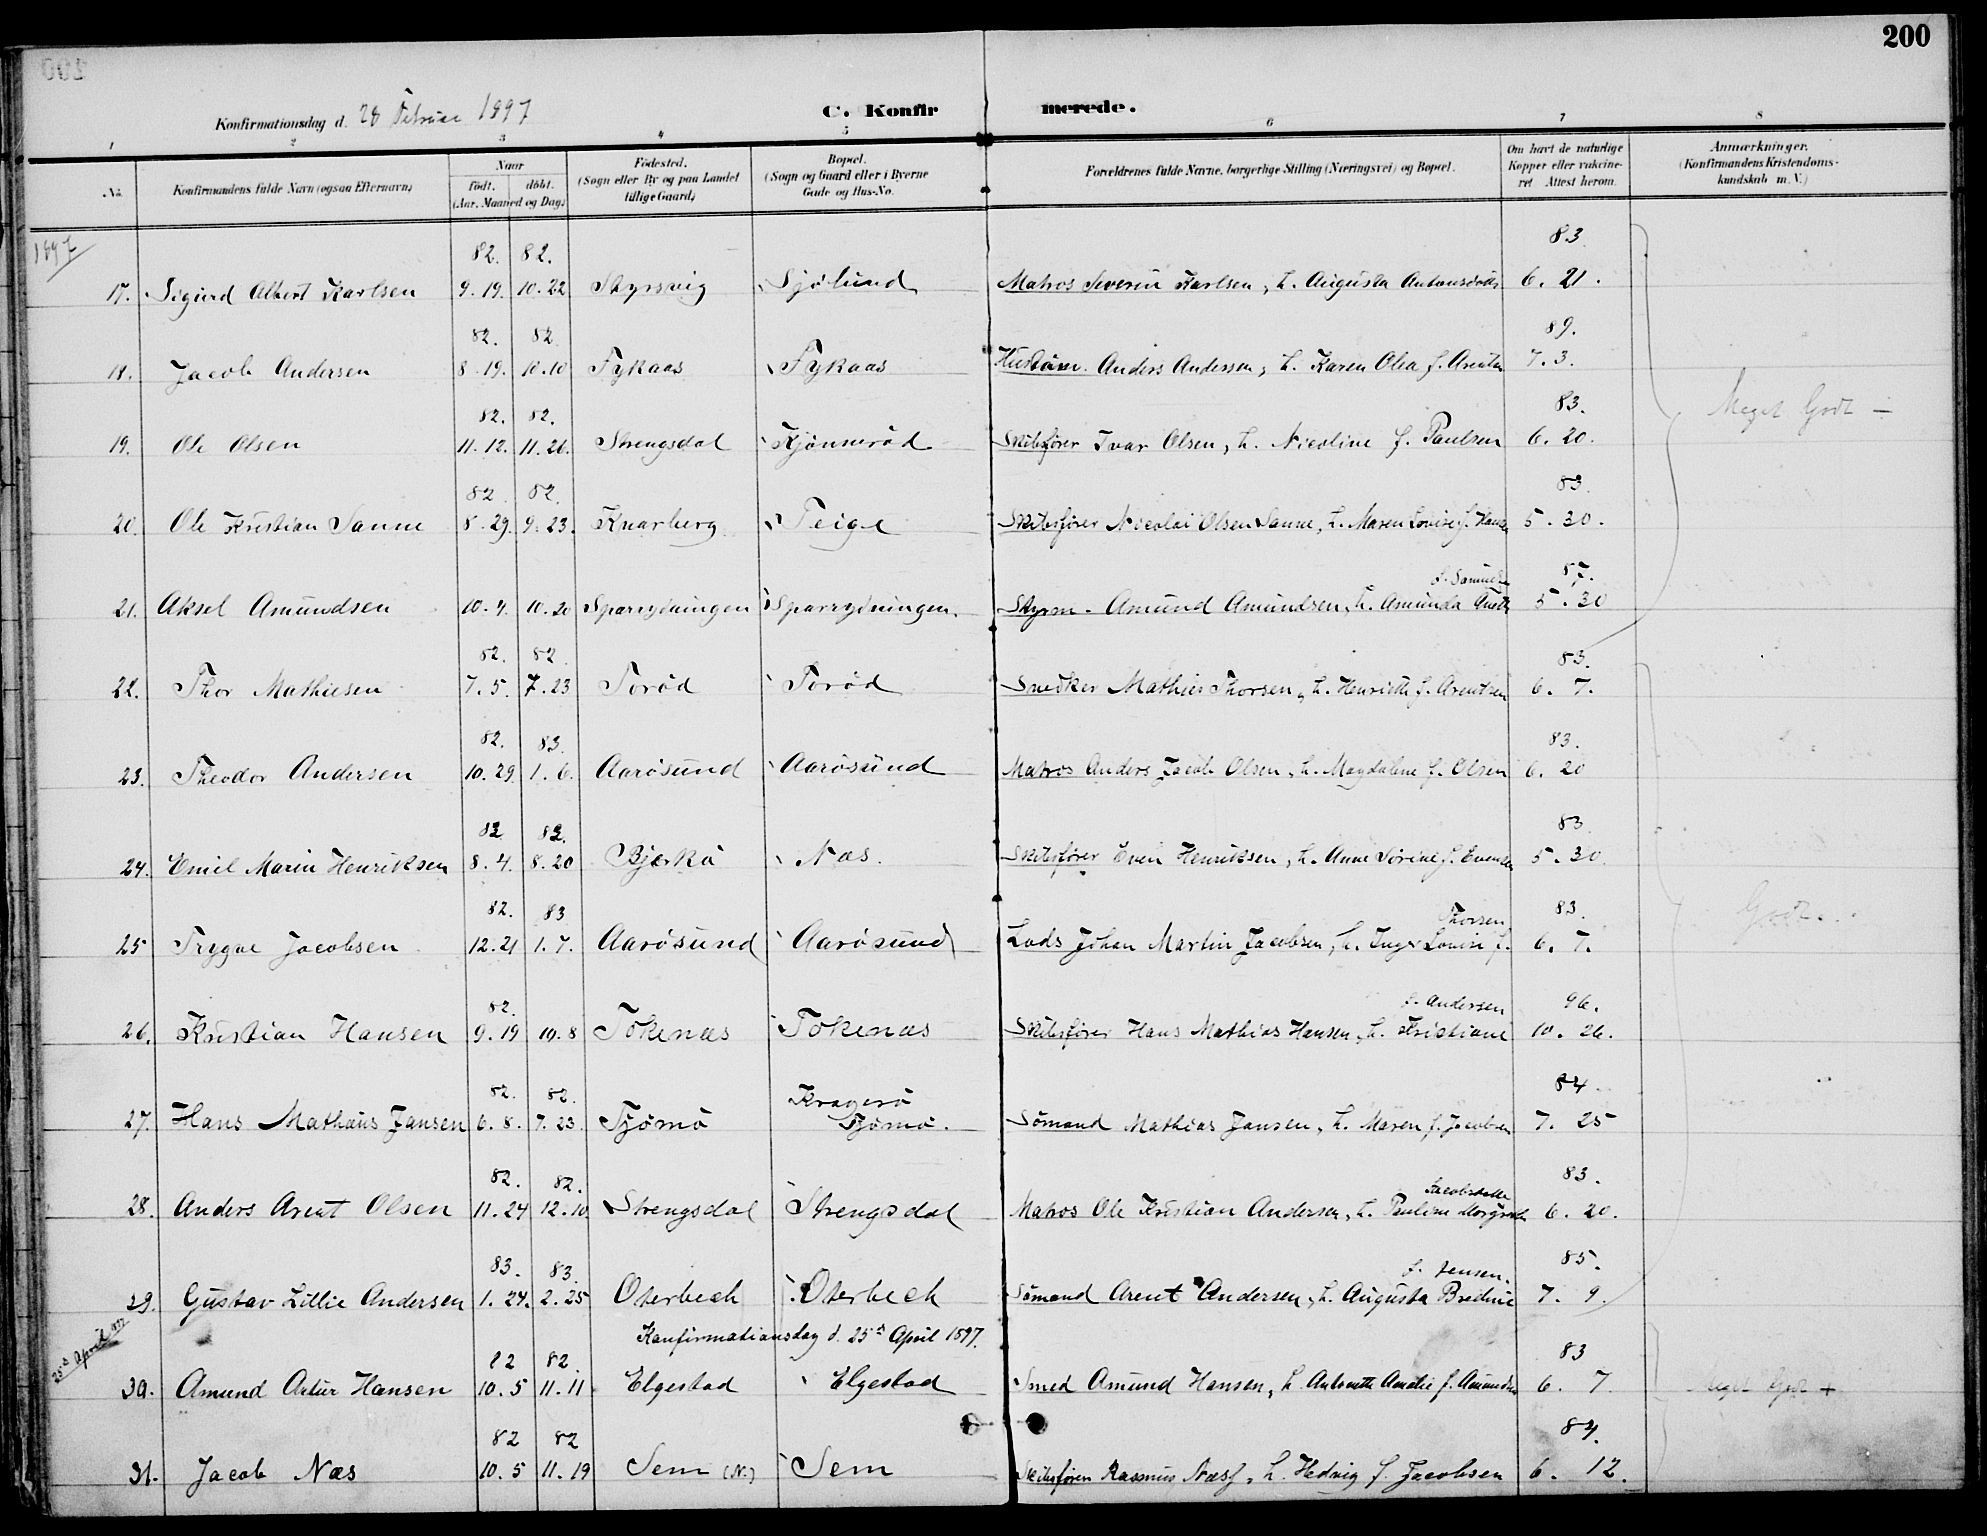 200
Konfirmationsdag d. 28 Februar 1897
C. Konfirmerede.
1 2 3 4 5 6 7 8
No. Konfirmandens fulde Navn (ogsaa Efternavn) Naar født. døbt. (Aar, Maaned og Dag.) Fødested. (Sogn eller By og paa Landet tillige Gaard) Bopæl. (Sogn og Gaard eller i Byerne Gade og Hus-No. Forældrenes fulde Navne, borgerlige Stilling (Næringsvei) og Bopæl. Om havt de naturlige Kopper eller vakcineret Attest herom. Anmærkninger. (Konfirmandens Kristendomskundskab m. V.)
1897
82. 82. 83.
17. Sigurd Albert Karlsen 9.19. 10.22 Styrsvig Sjølund Matros Severin Karlsen, h. Augusta Antonsdatter 6. 21.
82. 82. 89.
18. Jacob Andersen 8.19. 10.10 Fykaas Fykaas Anders Anderssen, h. Karen Olea f. 7. 3.
82. 82. 83. Meget Godt —
19. Ole Olsen 11.12. 11.26. Strengsdal Kjønnerød Skibsfører Ivar Olsen, h. Nicoline f. Paulsen 6. 20.
82. 82. 83.
20. Ole Kristian Sanne 8.29. 9.23. Knarberg Teige Skibsfører Nicolai Olsen Sanne, h. Maren Lovise f. Hansen 5. 30.
87.
21. Aksel Amundsen 10.4. 10.20 Sparrydningen Sparrydningen. Styrm. Amund Amundsen, h. Amunda 5. 30
82. 82. 83.
22. Thor Mathiesen 7.5. 7.23 Torød Torød Snedker Mathies Thorsen, h. Henriette f. Arentsen 6. 7.
82. 83. 83.
23. Theodor Andersen 10.29. 1.6. Aarøsund Aarøsund Matros Anders Jacob Olsen, h. Magdalene f. Olsen 6. 20
82 82. 83.
24. Emil Marin Henriksen 8.4. 8.20 Bjerkø Næs. Skibsfører Even Henriksen, h. Anne Sørine f. Evensen 5. 30.
82. 83 Thorsen 83. Godt.
25 Trygve Jacobsen 12.21 1.7. Aarøsund Aarøsund Lods Johan Martin Jacobsen, h. Inger Lovise f. 6. 7.
82. f. Andersen 96.
26. Kristian Hansen 9.19 10.8 Tokenæs Tokenæs Skibsfører Hans Mathias Hansen, h. Kristiane 10. 26.
82. 82. Kragerø 84.
27. Hans Mathæus Jansen 6.8. 7.23. Tjømø Tjømø. Sømand Mathias Jansen, h. Maren f. Jacobsen 7. 25
82. 82. 83.
28. Anders Arent Olsen 11.24 12.10 Strengsdal Strengsdal Matros Ole Kristian Andersen, h. Pauline 6. 20.
83. 83. f. Jensen. 85.
29. Gustav Lillie Andersen 1.24. 2.25 Oterbech Oterbech Sømand Arent Andersen, h. Augusta Bredine 7. 9.
25de April 1897
Konfirmationsdag d. 25de April 1897.
82 82. 83
30. Amund Artur Hansen 10.5 11.11 Elgestad Elgestad Smed Amund Hansen, h. Antonette Amalie f. Amundsen 6. 7. Meget Godt +
82 82 84.
31. Jacob Næs 10.5 11.19 Sem (N.) Sem Skibsføren Rasmus Næss, h. Hedvig f. Jacobsen 6. 12.